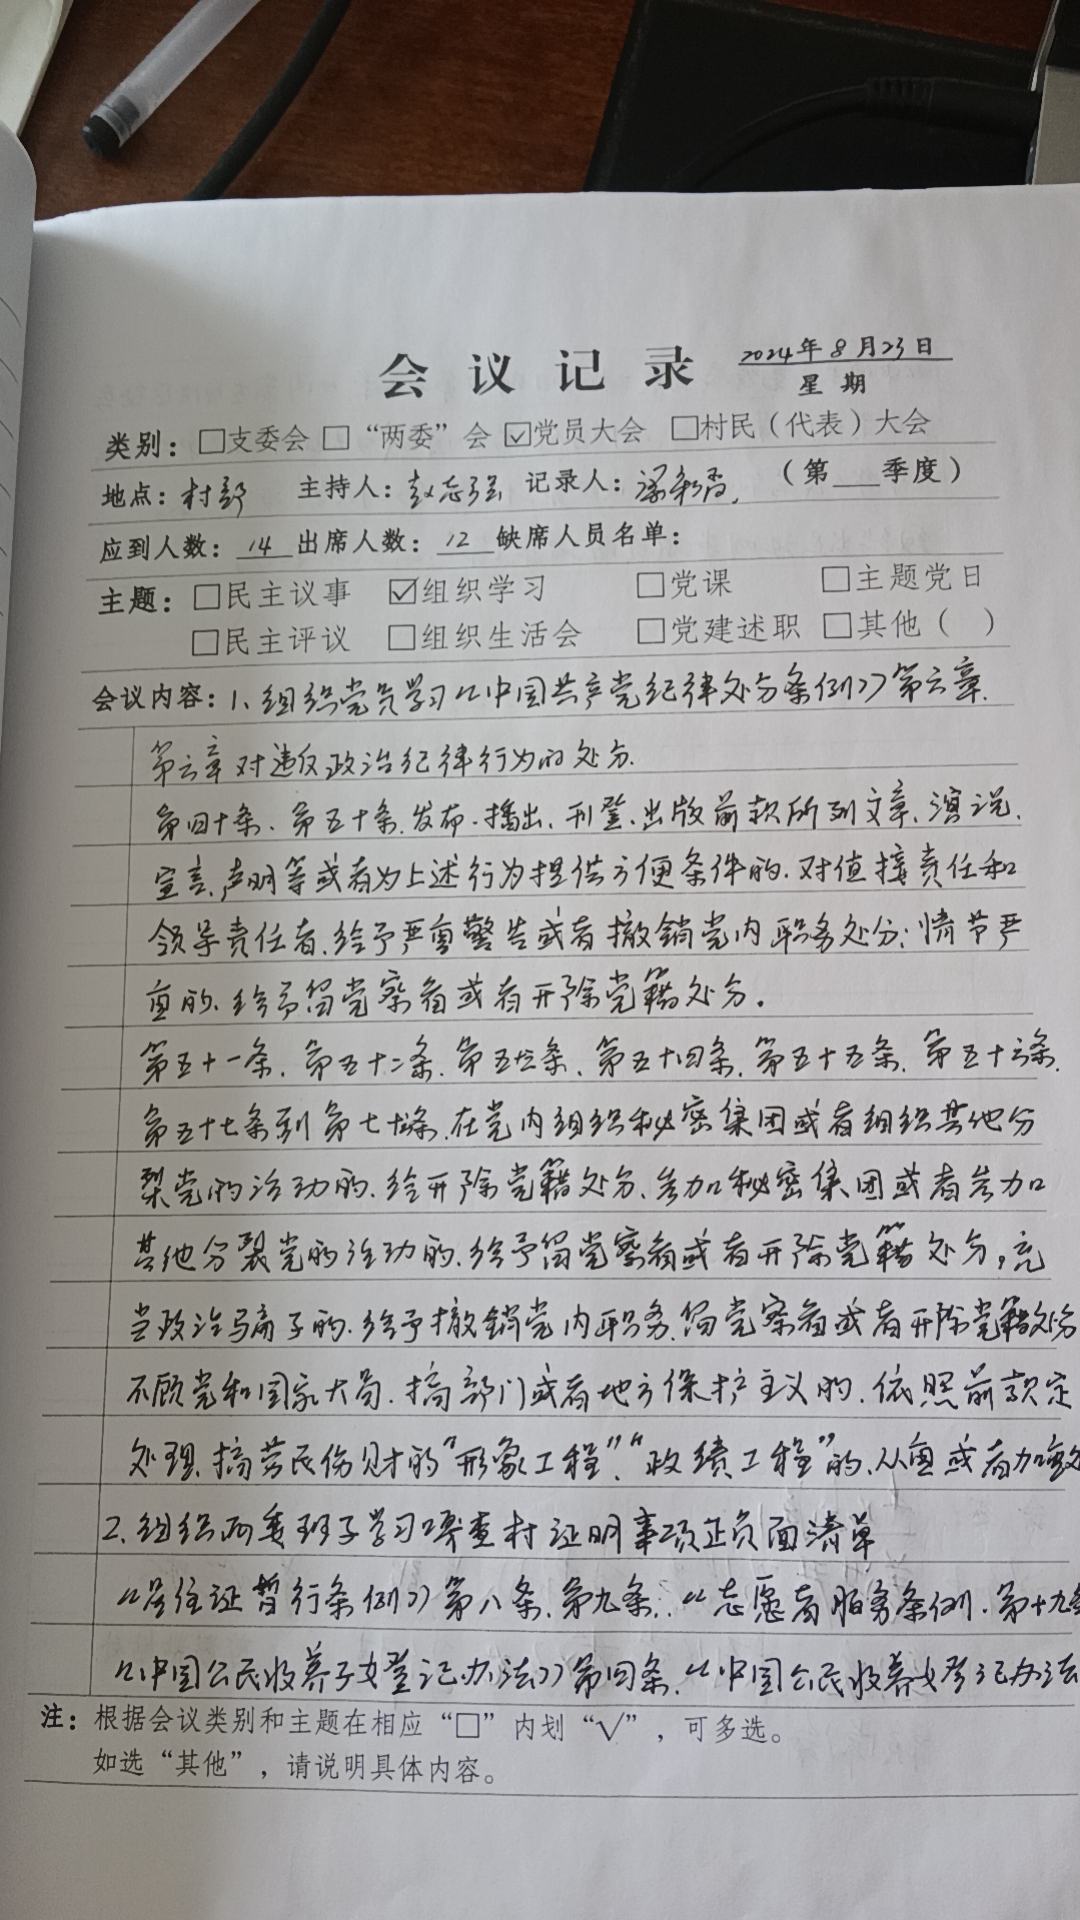 会议记录 2024年8月23日
星期
类别：□支委会 □“两委”会 ☑党员大会 □村民（代表）大会
地点：村部 主持人：赵志强 记录人：梁彩香 （第___季度）
应到人数：14 出席人数：12 缺席人员名单：
主题：□民主议事 ☑组织学习 □党课 □主题党日
□民主评议 □组织生活会 □党建述职 □其他（ ）
会议内容：1、组织党员学习《中国共产党纪律处分条例》第六章.
第六章对违反政治纪律行为的处分.
第四十条、第五十条.发布.播出、刊登、出版前款所列文章、演说、
宣言、声明等或者为上述行为提供方便条件的.对值接责任和
领导责任者、给予严重警告或者撤销党内职务处分；情节严
重的、给予留党察看或者开除党籍处分。
第五十一条、第五十二条、第五十三条、第五十四条、第五十五条、第五十六条、
第五十七条到第七十条、在党内组织秘密集团或者组织其他分
裂党的活动的、给开除党籍处分、参加秘密集团或者参加
其他分裂党的活动的、给予留党察看或者开除党籍处分，充
当政治骗子的、给予撤销党内职务、留党察看或者开除党籍处分
不顾党和国家大局、搞部门或者地方保护主义的、依照前款定
处理、搞劳民伤财的“形象工程”、“政绩工程”的、从重或者加重处
2、组织两委班子学习嘎查村证明事项正负面清单
《居住证暂行条例》第八条、第九条、《志愿者服务条例、第十九条
《中国公民收养子女登记办法》第四条、《中国公民收养女登记办法
注：根据会议类别和主题在相应“□”内划“√”，可多选。
如选“其他”，请说明具体内容。